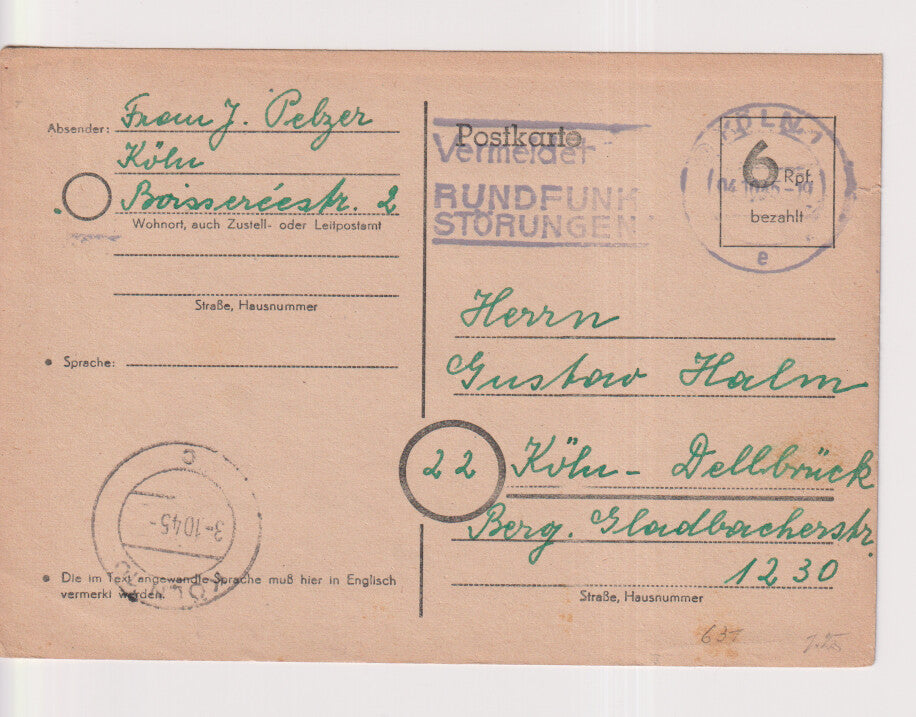 Absender: Franz J. Pelzer
Köln
Boisseréestr. 2
Wohnort, auch Zustell- oder Leitpostamt
Straße, Hausnummer
• Sprache:
• Die im Text angewandte Sprache muß hier in Englisch
vermerkt werden.
C
3-1045-
KÖLN
Postkarte
Vermeidet
RUNDFUNK
STÖRUNGEN
KÖLN 1
e
6 Rpf.
bezahlt
Herrn
Gustav Halm
22 Köln - Dellbrück
Berg. Gladbacherstr.
1230
Straße, Hausnummer